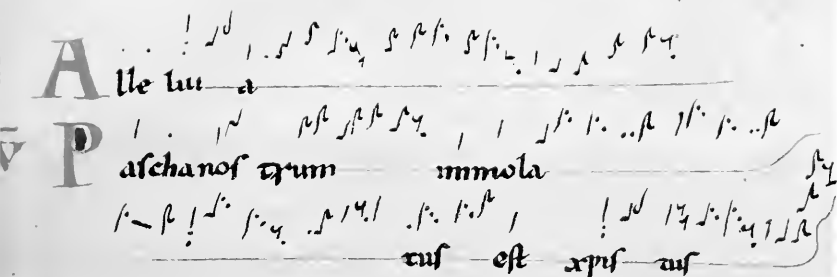 Alle lui a
v̄ Paſchanoſ trum immola
tuſ eſt xpiſ tuſ